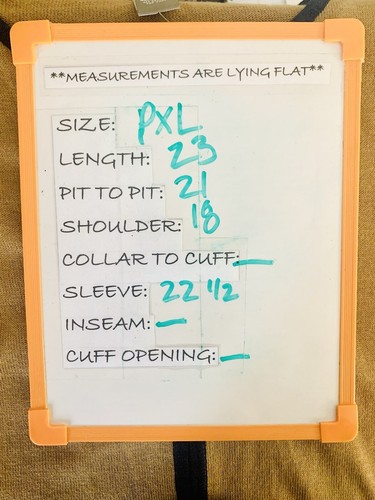 **MEASUREMENTS ARE LYING FLAT**
SIZE: PXL
LENGTH: 23
PIT TO PIT: 21
SHOULDER: 18
COLLAR TO CUFF: —
SLEEVE: 22 1/2
INSEAM: —
CUFF OPENING: —